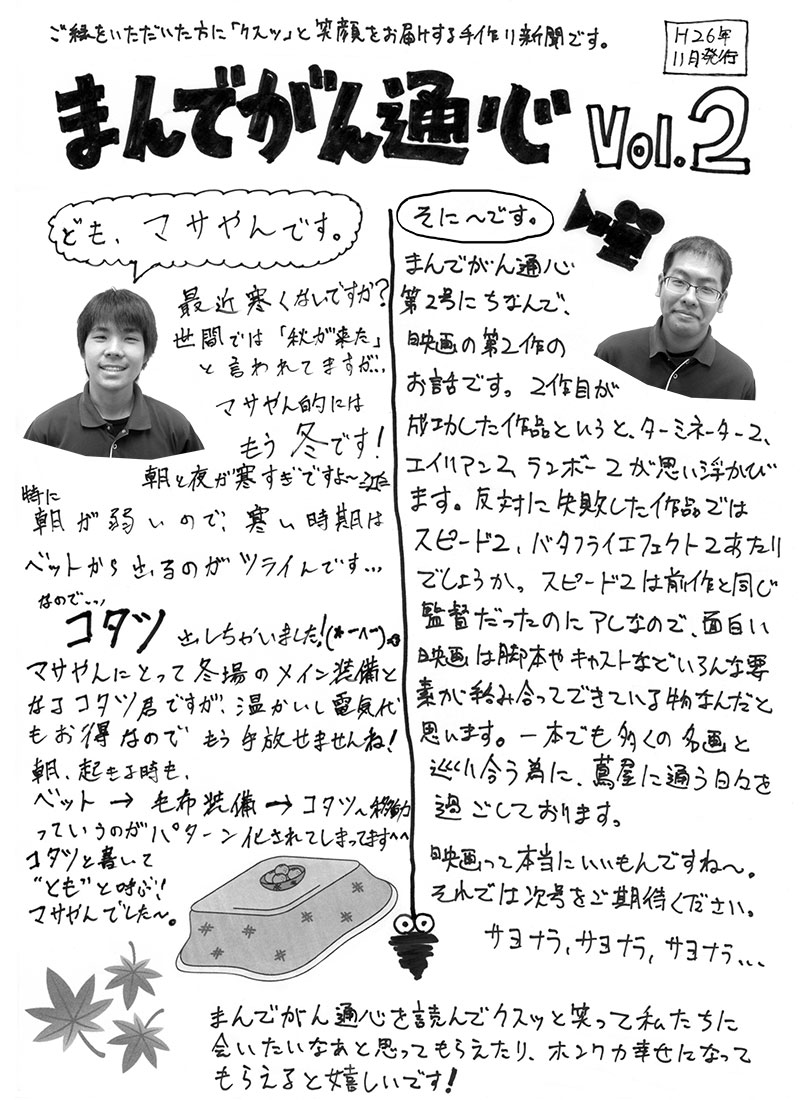 ご縁をいただいた方に「クスッ」と笑顔をお届けする手作り新聞です。
H26年
11月発行
まんでがん通心 Vol.2
ども、マサやんです。
最近寒くないですか?
世間では「秋が来た」
と言われてますが…
マサやん的には
もう冬です!
朝と夜が寒すぎですよ〜
特に
朝が弱いので、寒い時期は
ベットから出るのがツライんです…
なので…
コタツ 出しちゃいました!(*^-^)
マサやんにとって冬場のメイン装備と
なるコタツ君ですが、温かいし電気代
もお得なので もう手放せませんね!
朝、起きる時も、
ベット→毛布装備→コタツへ移動
っていうのがパターン化されてしまってます^^
コタツと書いて
"とも"と呼ぶ!
マサやんでした〜。
そに〜です。
まんでがん通心
第2号にちなんで、
映画の第2作の
お話です。2作目が
成功した作品というと、ターミネーター2、
エイリアン2、ランボー2が思い浮かび
ます。反対に失敗した作品では
スピード2、バタフライエフェクト2あたり
でしょうか。スピード2は前作と同じ
監督だったのにアレなので、面白い
映画は脚本やキャストなどいろんな要
素が絡み合ってできている物なんだと
思います。一本でも多くの名画と
巡り合う為に、蔦屋に通う日々を
過ごしております。
映画って本当にいいもんですね〜。
それでは次号をご期待ください。
サヨナラ、サヨナラ、サヨナラ…
まんでがん通心を読んでクスッと笑って私たちに
会いたいなあと思ってもらえたり、ホンワカ幸せになって
もらえると嬉しいです!